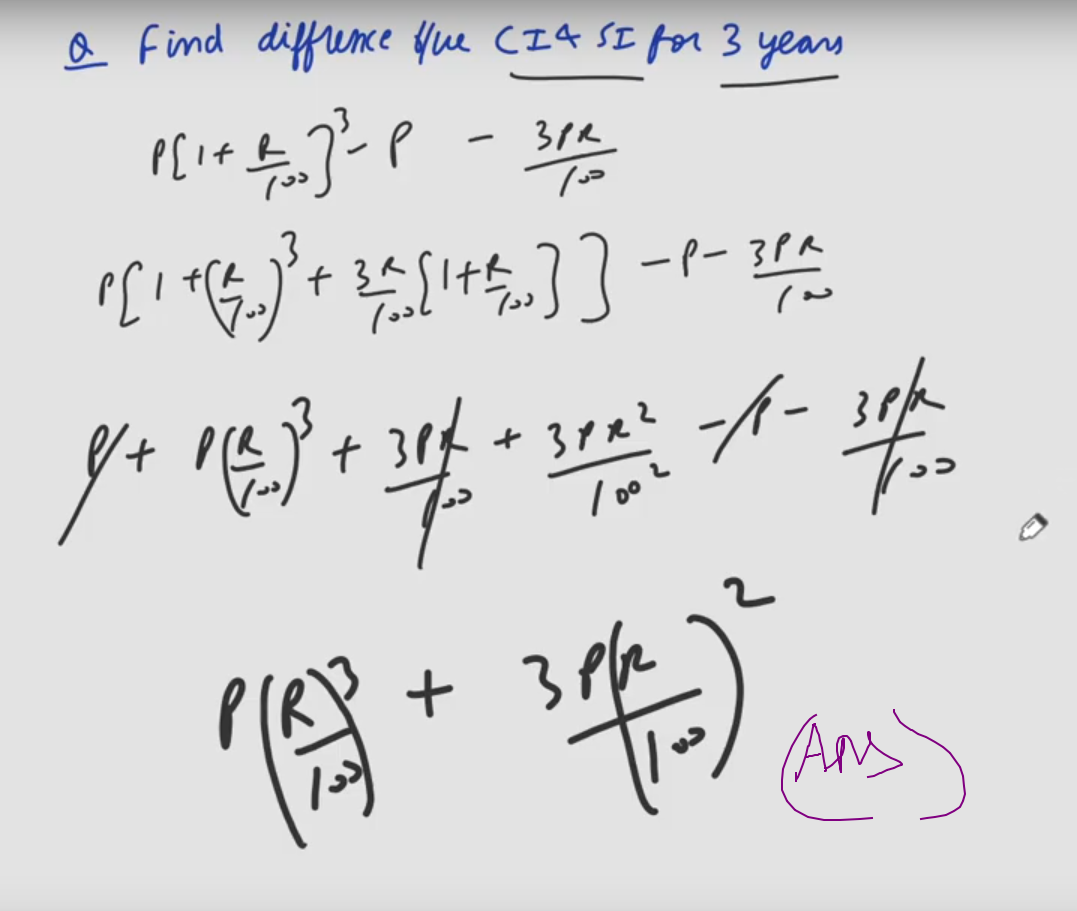 Q Find diffrence b/w CI & SI for 3 years
P[1 + R/100]³ - P - 3PR/100
P[1 + (R/100)³ + 3R/100 [1 + R/100]] - P - 3PR/100
P + P(R/100)³ + 3PR/100 + 3PR²/100² - P - 3PR/100
P(R/100)³ + 3P(R/100)²
(Ans)